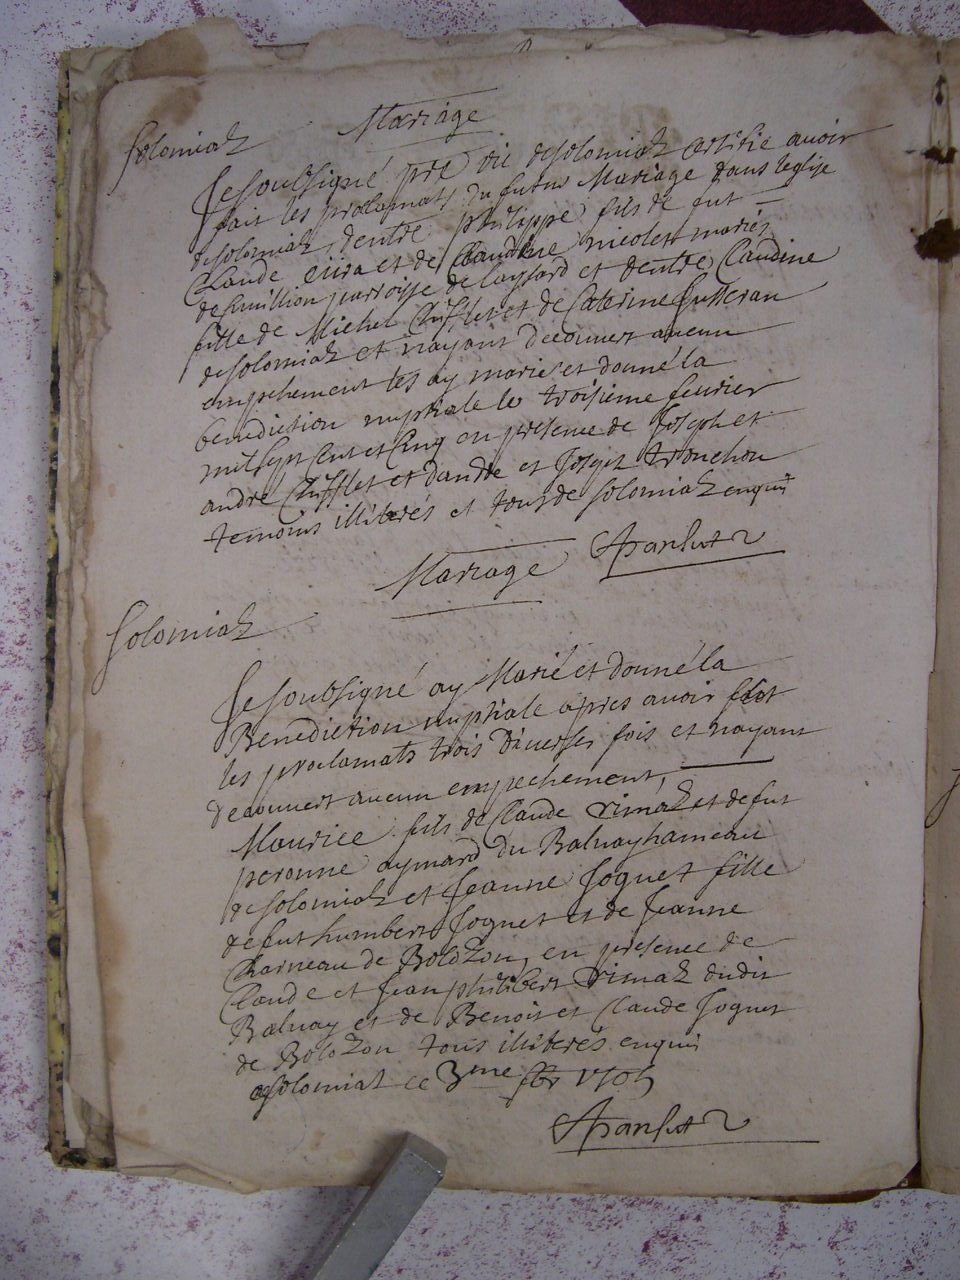 Mariage
Solomiaz
Je soubsigné pre vic de Solomiaz certifie avoir
fait les proclamats du futur Mariage dans leglise
de Solomiaz dentre philippe fils de fut
Claude et de Claudine nicolet mariés
de parroisse de et dentre Claudine
fille de Michel Chifflet et de Caterine
de Solomiaz et nayant decouuert aucun
empechement les ay mariés et donné la
benediction nuptiale le troisieme feurier
mil sept cent et cinq en presence de Joseph et
andré Chifflet et dandré et Joseph tronchon
temoins illiterés et tous de Solomiaz enquis
Mariage
Solomiaz
Je soubsigné ay Marié et donné la
Benediction nuptiale apres avoir fait
les proclamats trois diuerses fois et nayant
decouuert aucun empechement,
Maurice fils de Claude rimaz et de fut
peronne aymard du Baluay hameau
de Solomiaz et Jeanne Joguet fille
de fut humbert Joguet et de Jeanne
Charneau de BoloZon, en presence de
Claude et Jean philibert rimaz dudit
Baluay et de Benoit et Claude Joguet
de BoloZon tous illiterés enquis
a Solomiat ce 3me fbr 1705